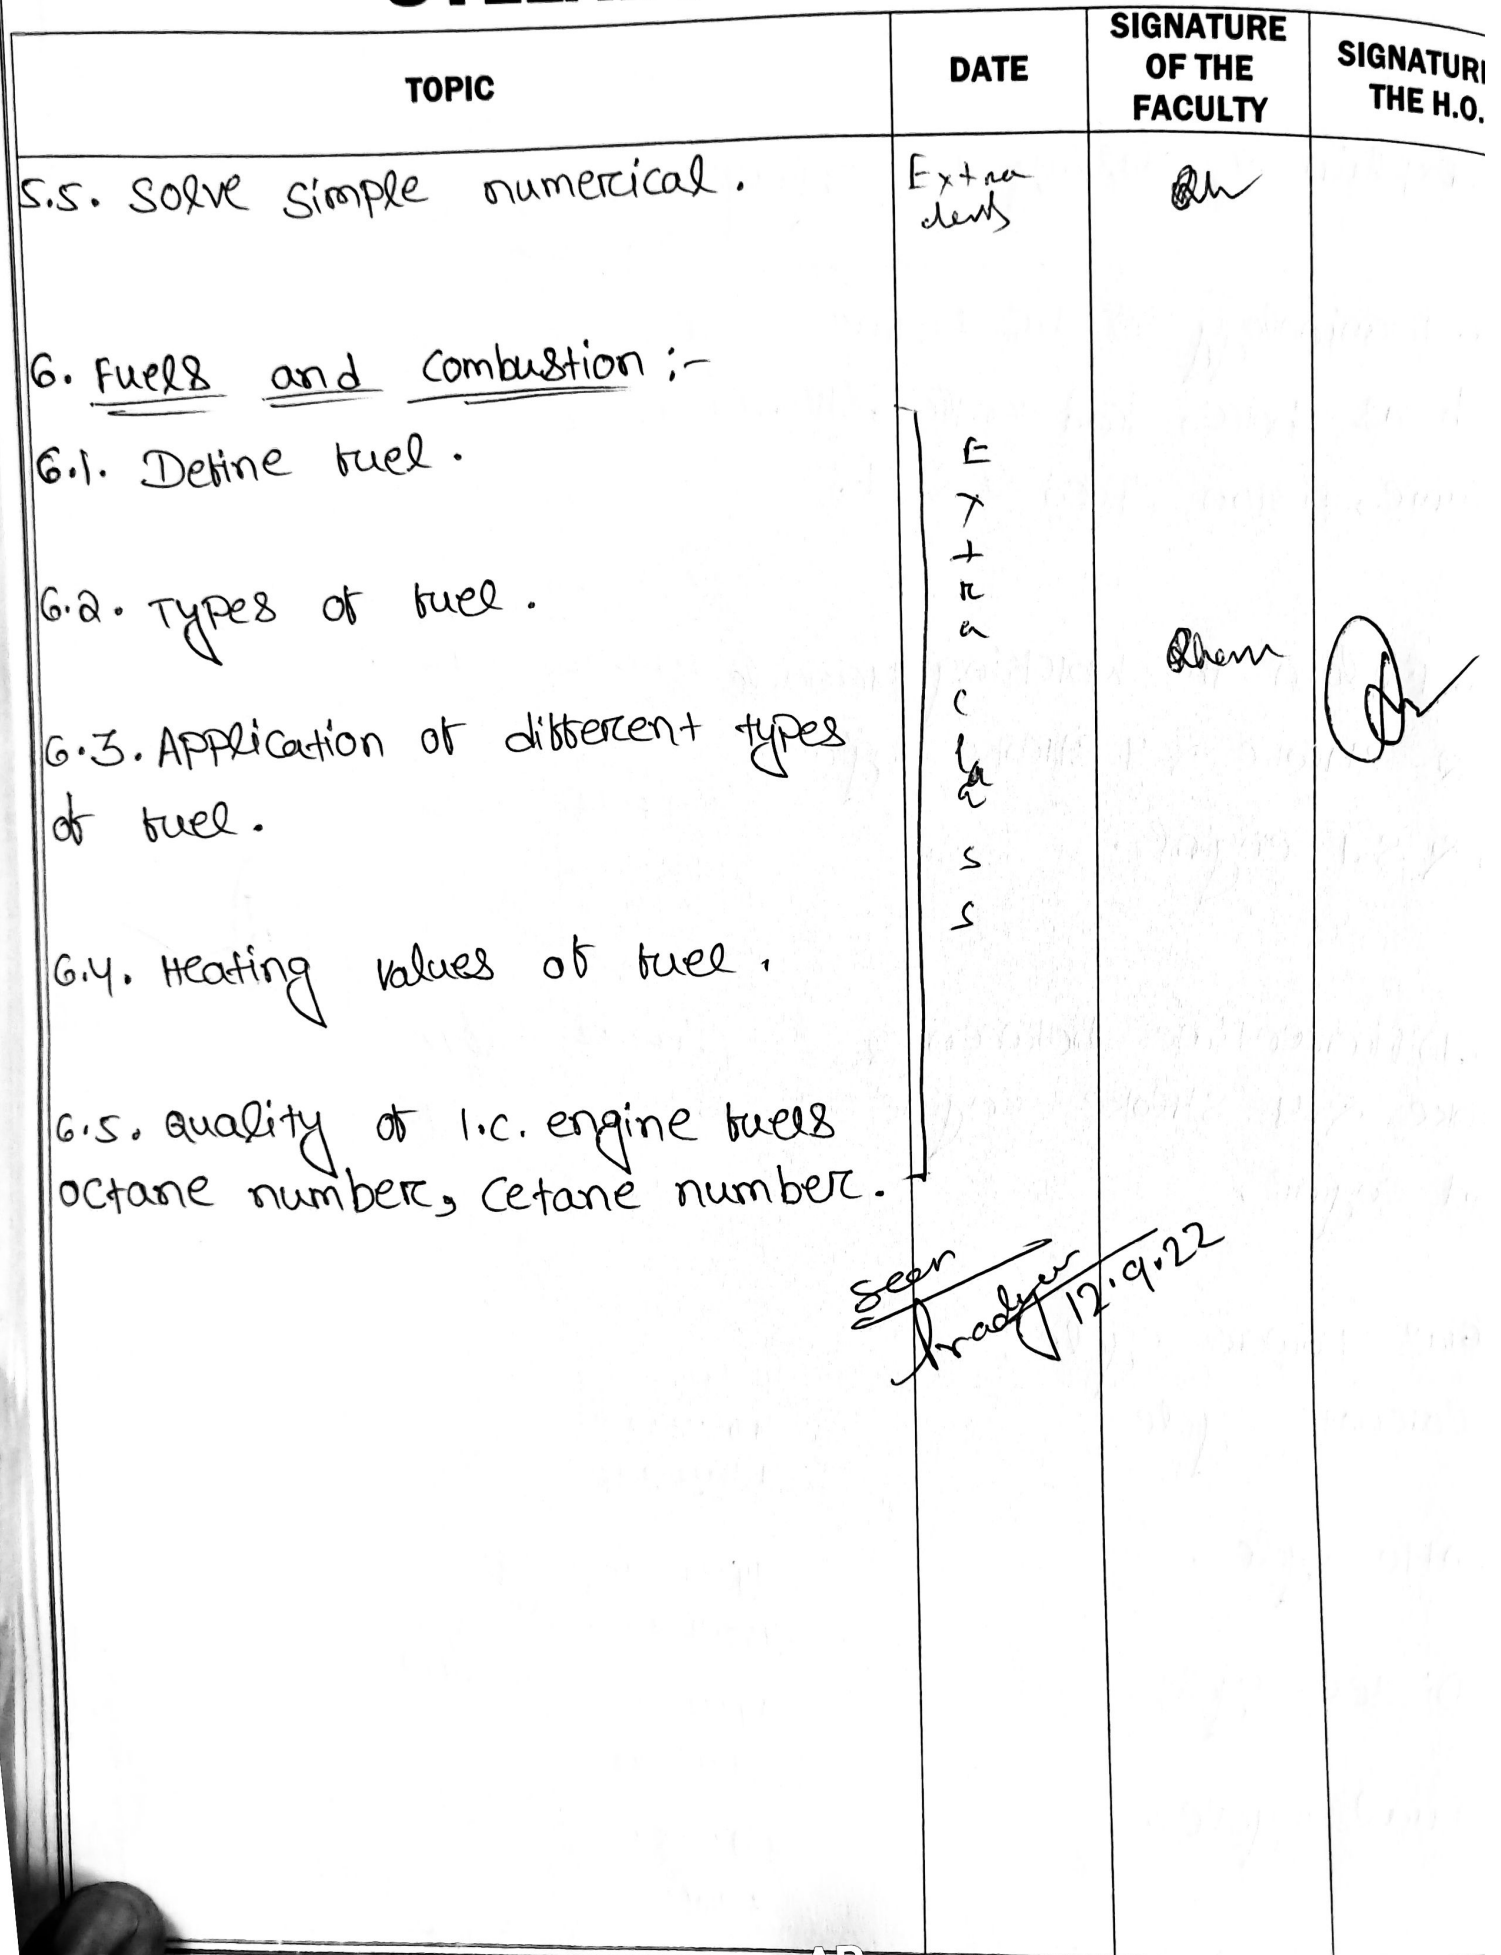 TOPIC
DATE
SIGNATURE
OF THE
FACULTY
SIGNATURE
THE H.O.
5.5. Solve Simple numerical.
Extra
6. Fuels and Combustion :-
6.1. Define fuel.
6.2. Types of fuel.
6.3. Application of different types
of fuel.
6.4. Heating values of fuel.
6.5. Quality of I.C. engine fuels
octane number, Cetane number.
Extra Class
Seen
12.9.22